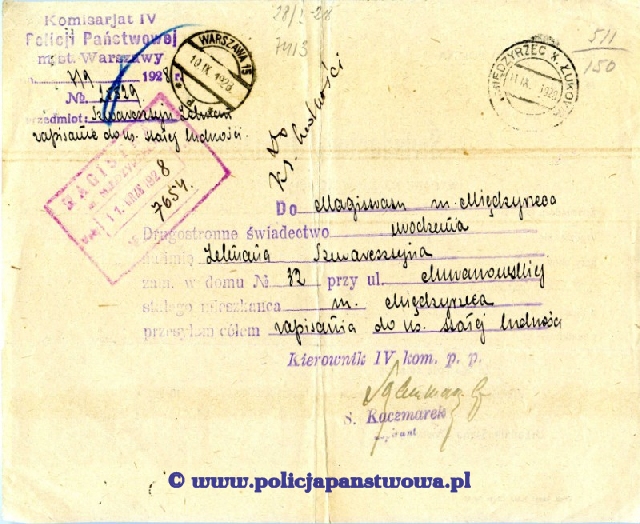 Komisarjat IV
Policji Państwowej
m. st. Warszawy
4/9 1928 r.
№
przedmiot: Szwarcsztyn Zelman
zapisanie do ks. stałej ludności.
WARSZAWA 15
10 IX. 1928
28/I-28
7413
MIĘDZYRZEC K. ŁUKOWA
11 IX. 1928
5/1
150
Do
Ks. ludności
MAGISTRAT
11. WRZE 1928
7654.
Do Magistratu m. Międzyrzeca
Drugostronne świadectwo urodzenia
na imię Zelmana Szwarcsztyna
zam. w domu № 82 przy ul. Muranowskiej
stałego mieszkańca m. Międzyrzeca
przesyłam celem zapisania do ks. stałej ludności
Kierownik IV kom. p. p.
S. Kaczmarek
aspirant
© www.policjapanstwowa.pl